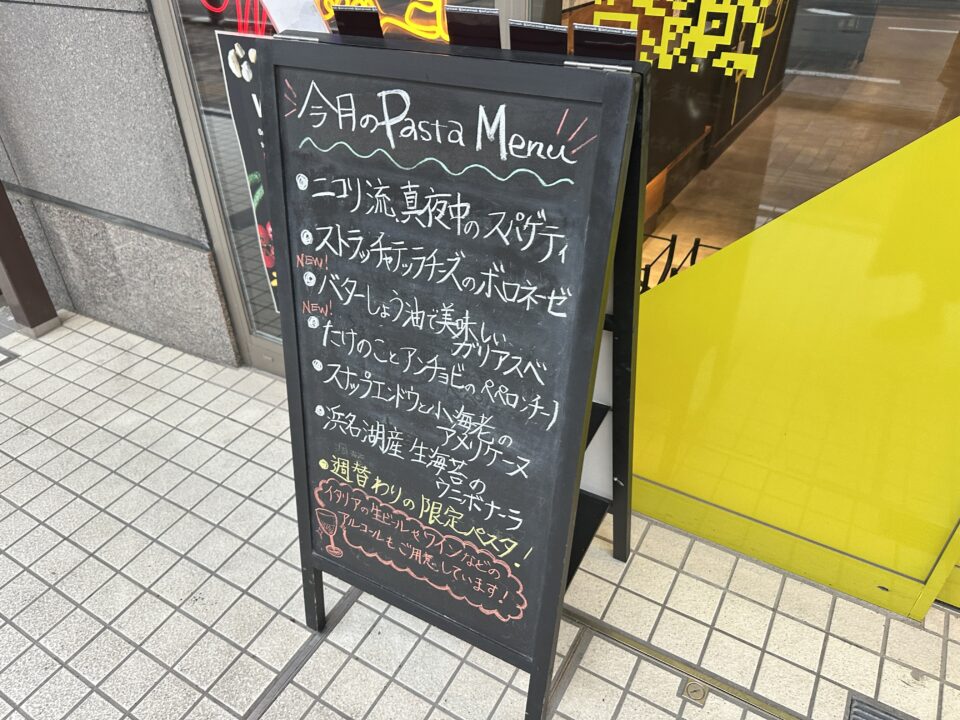 今月のPasta Menu
ニコリ流、真夜中のスパゲティ
ストラッチャテッラチーズのボロネーゼ
NEW!
バターしょう油で美味しい
ガリアスベ
NEW!
たけのことアンチョビのペペロンチーノ
スナップエンドウと小海老の
アメリケーヌ
浜名湖産 生海苔の
ウニボナーラ
週替わりの限定パスタ!
イタリアの生ビールやワインなどの
アルコールもご用意しています!